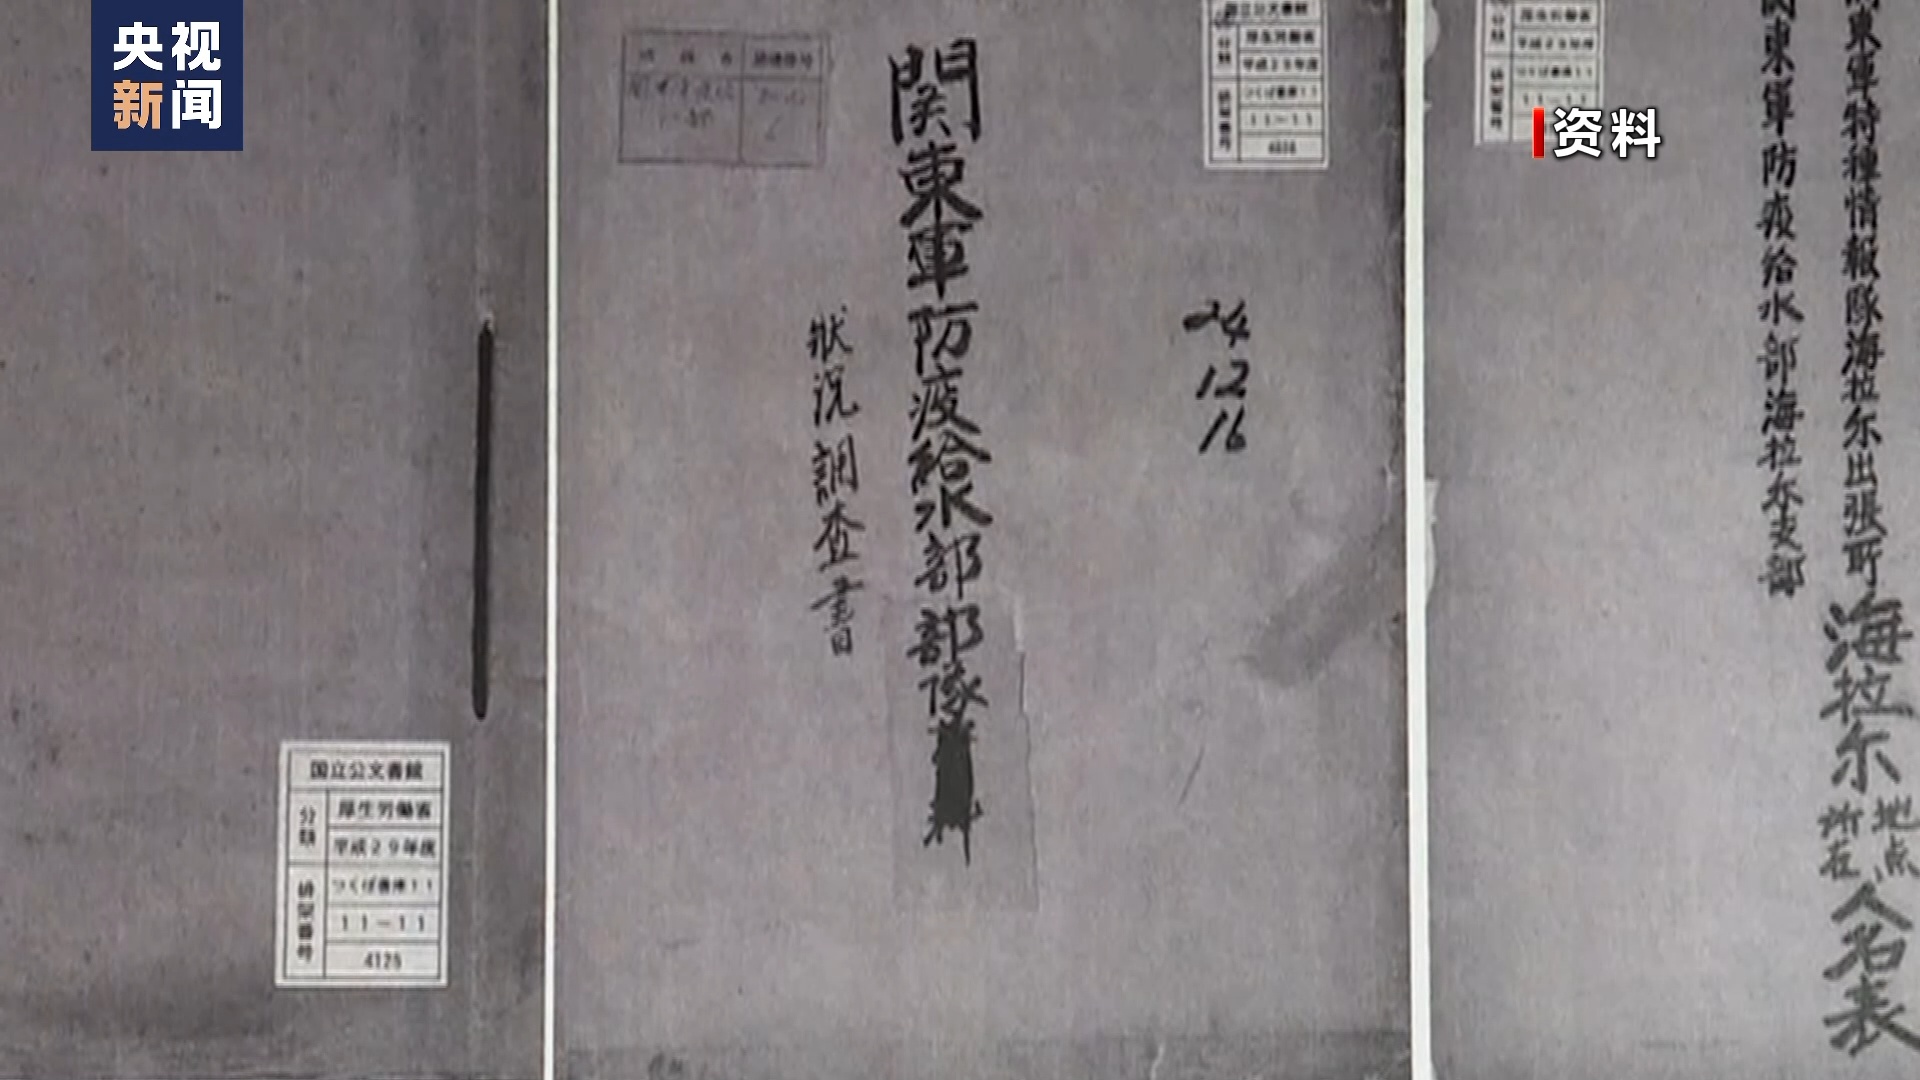 央视
新闻
资料
国立公文書館
分類
厚生労働省
平成29年度
つくば書庫11
排架番号
11-11
4125
関東軍防疫給水部部隊
状況調査書
24
12
16
国立公文書館
分類
厚生労働省
平成29年度
つくば書庫11
排架番号
11-11
厚生労働省
平成29年度
つくば書庫11
11-11
東軍特種情報隊海拉尓出張所
海拉尓
地点
所在
人名表
関東軍防疫給水部海拉尓支部